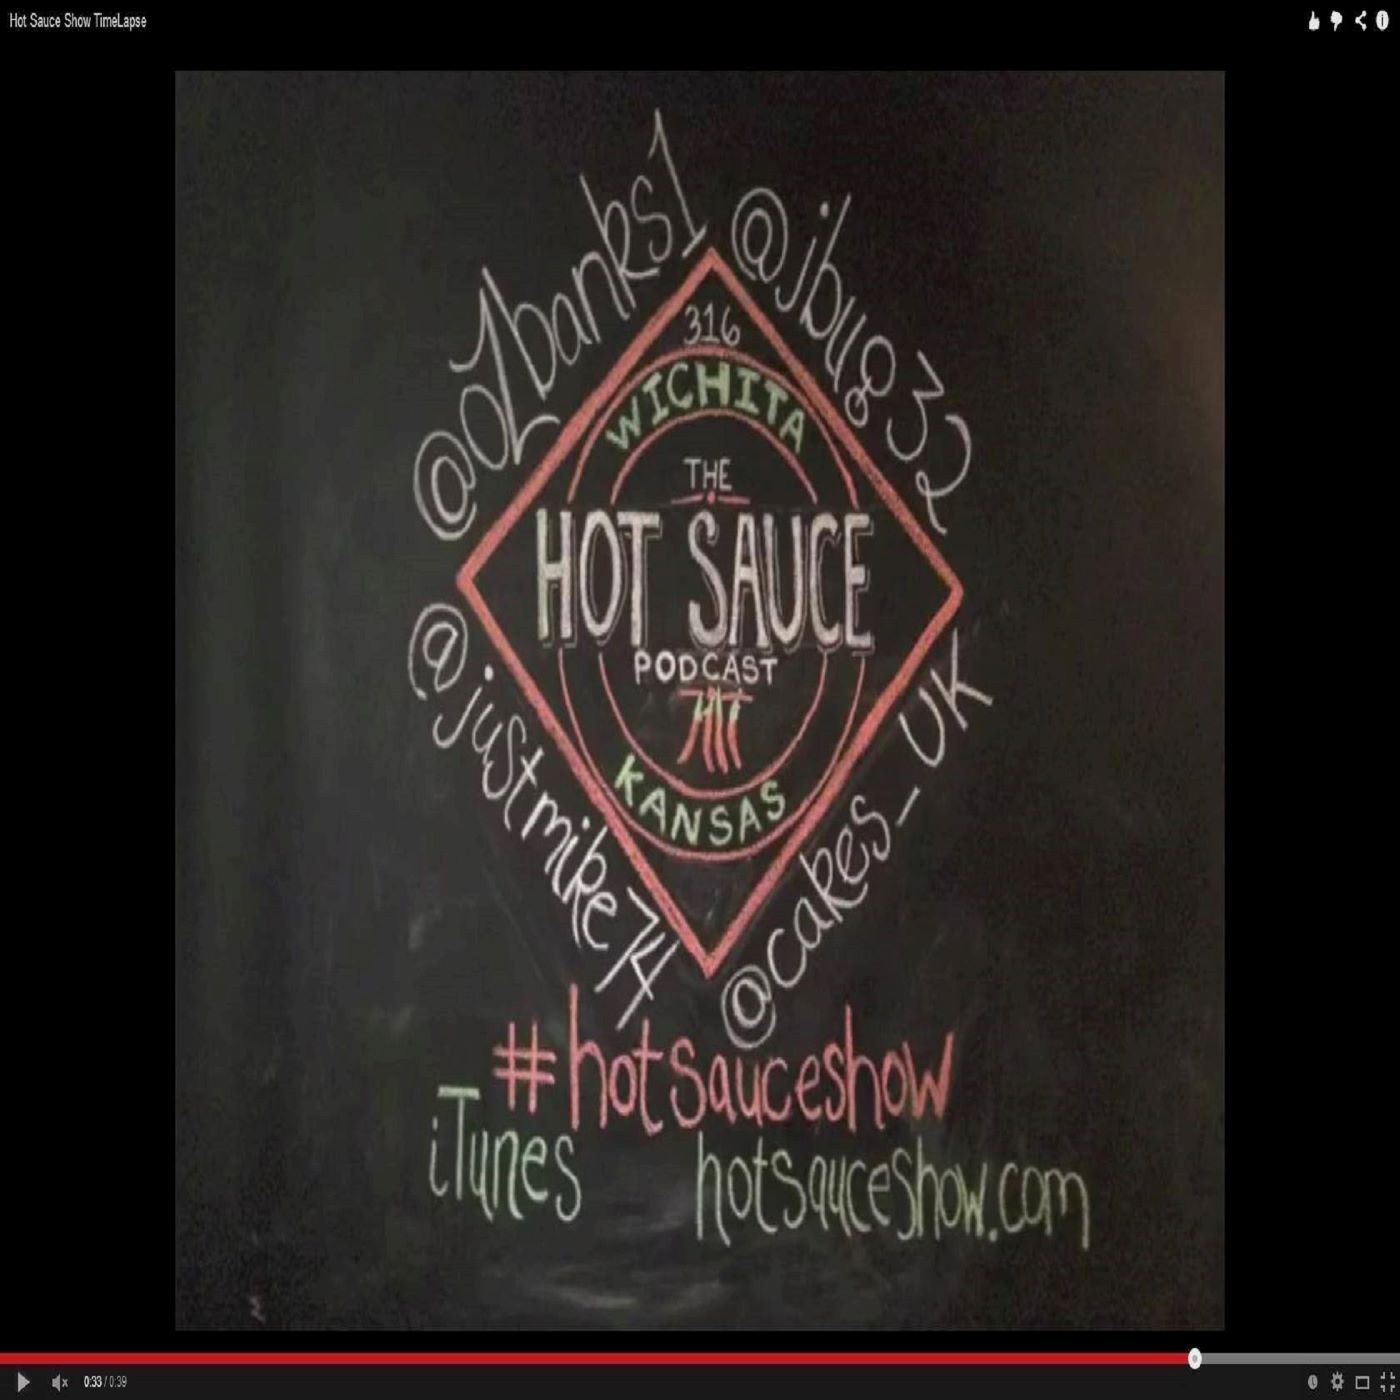 Hot Sauce Show TimeLapse
@OZbanks1
@jbug32
316
WICHITA
THE
HOT SAUCE
PODCAST
KANSAS
@justmike74
@cakes_UK
#hotsauceshow
iTunes
hotsauceshow.com
0:33 / 0:39